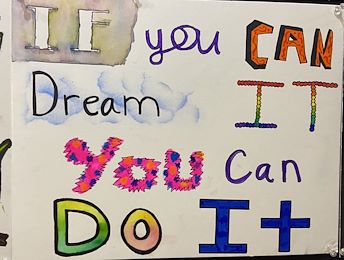 IF you CAN
Dream IT
YOU Can
Do It